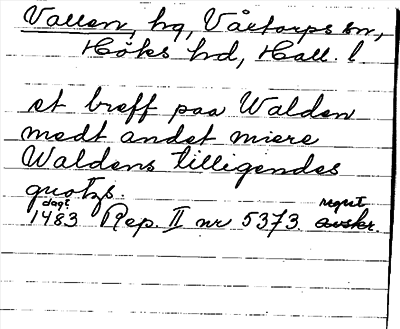 Vallen, hg, Vårtorps sn,
Höks hd, Hall. l
et breff paa Walden
medt andet miere
Waldens tilligendes
guotzs.
dagt regist
1483 Rep. II nr 5373. avskr.